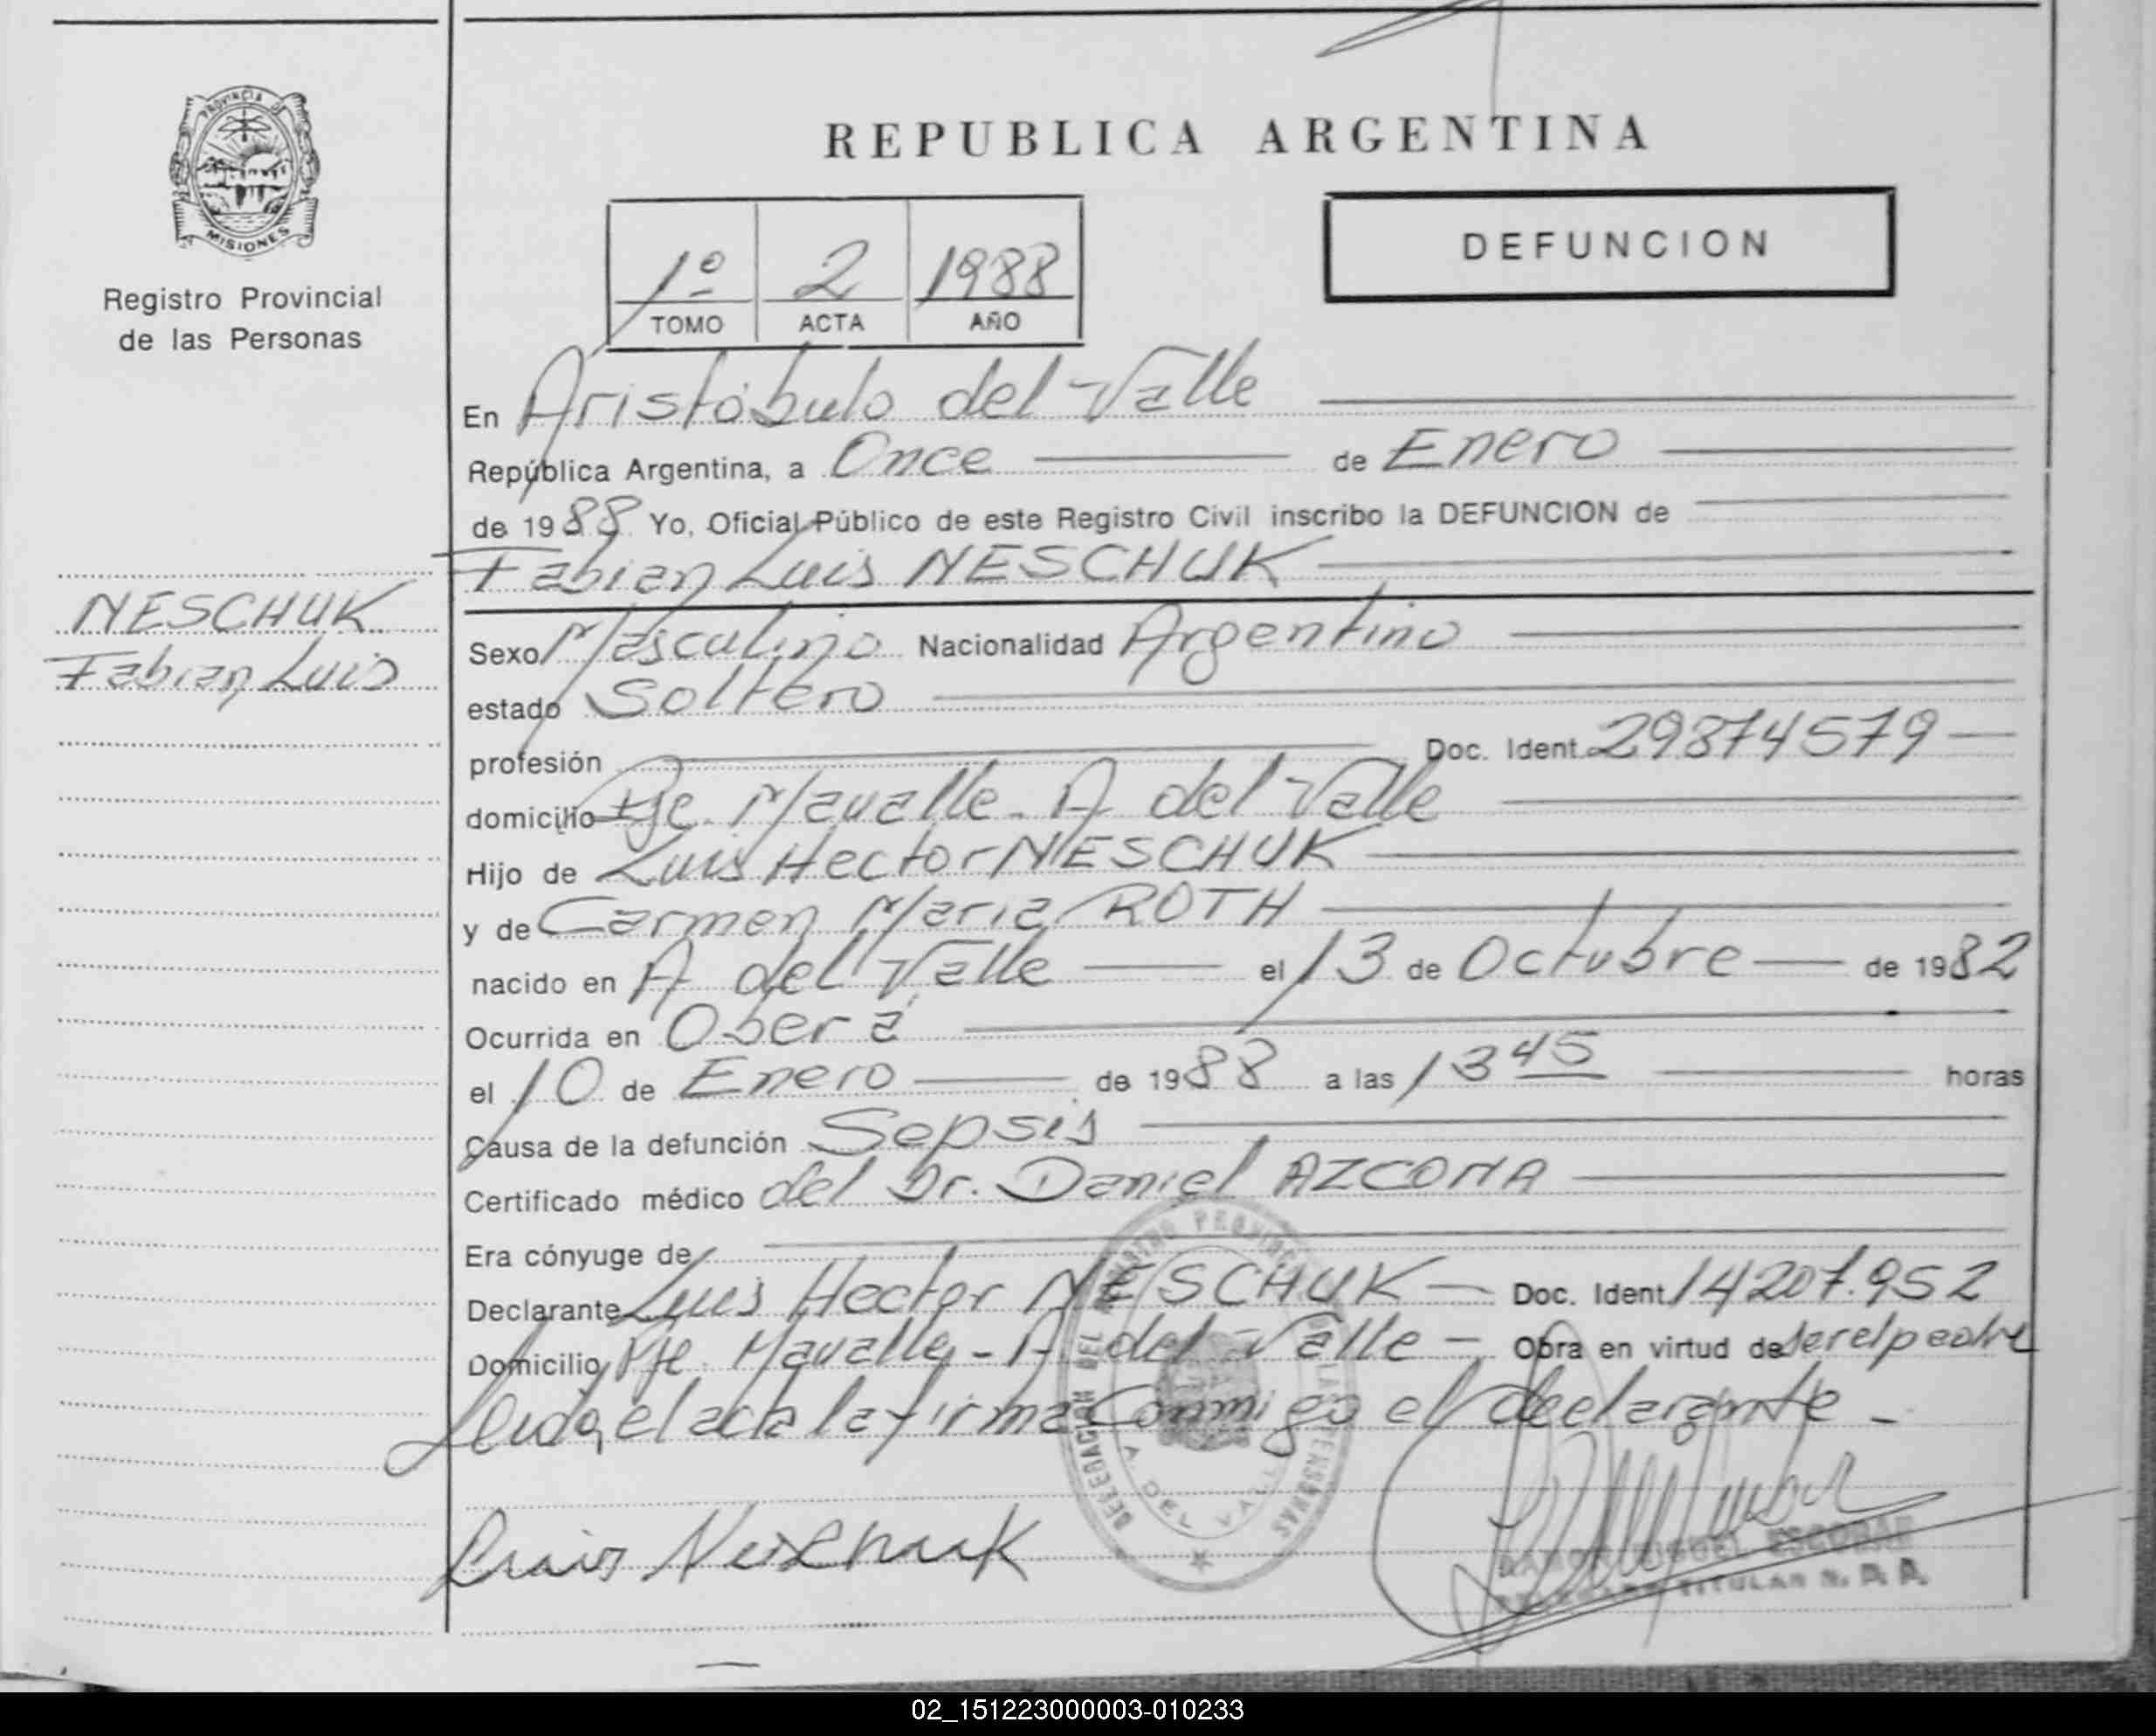 PROVINCIA DE
MISIONES
Registro Provincial
de las Personas
NESCHUK
Fabian Luis
REPUBLICA ARGENTINA
1º 2 1988
TOMO ACTA AÑO
DEFUNCION
En Aristóbulo del Valle
República Argentina, a Once de Enero
de 1988 Yo, Oficial Público de este Registro Civil inscribo la DEFUNCION de
Fabian Luis NESCHUK
Sexo Masculino Nacionalidad Argentino
estado Soltero
profesión Doc. Ident. 29874579
domicilio Pje. Mavalle - A del Valle
Hijo de Luis Hector NESCHUK
y de Carmen Maria ROTH
nacido en A del Valle el 13 de Octubre de 1982
Ocurrida en Oberá
el 10 de Enero de 1988 a las 13 45 horas
Causa de la defunción Sepsis
Certificado médico del Dr. Daniel AZCONA
Era cónyuge de
Declarante Luis Hector NESCHUK Doc. Ident. 14207.952
Domicilio Pje. Mavalle - A del Valle - Obra en virtud de ser el padre
leida el acta la firma conmigo el declarante -
DELEGACION DEL REGISTRO PROVINCIAL DE LAS PERSONAS
A DEL VALLE
Luis Neschuk
RAMON MIGUEL ESCOBAR
DELEGADO TITULAR R. P. P.
02_151223000003-010233